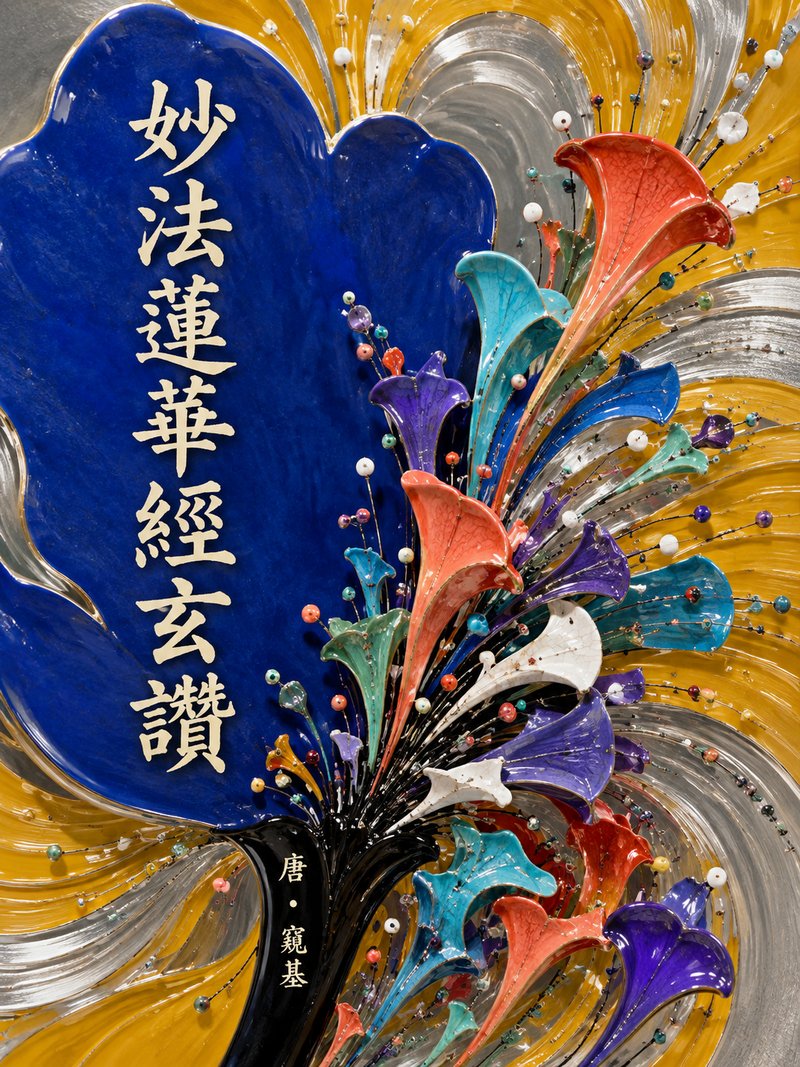 妙法蓮華經玄讚
唐・窺基